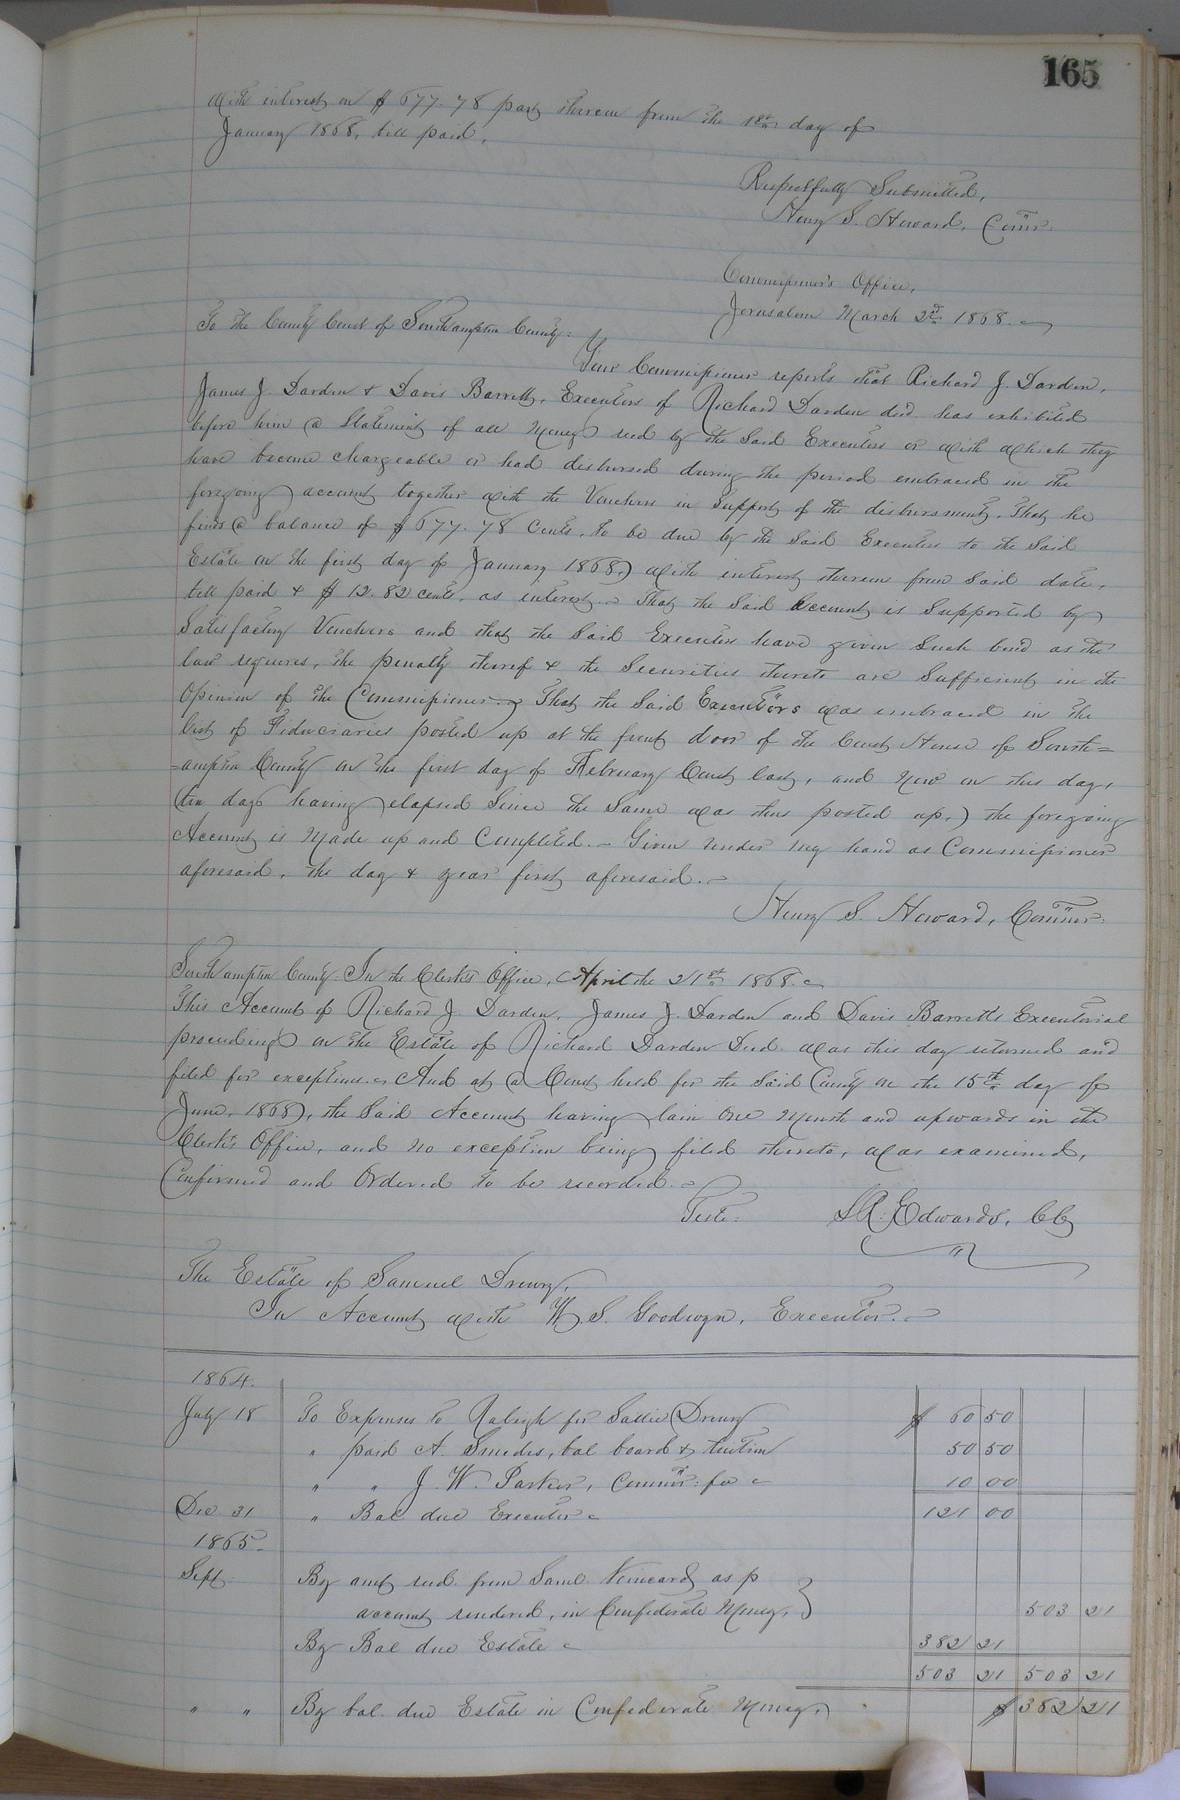 165
with interest on $677.78 part thereon from the 1st day of
January 1868, till paid.
Respectfully Submitted,
Henry S. Howard, Comr.
Commissioner's Office,
Jerusalem March 2nd 1868.
To the County Court of Southampton County:
Your Commissioner reports that Richard J. Darden,
James J. Darden & Davis Barrett, Executors of Richard Darden decd has exhibited
before him a Statement of all Money recd by the Said Executors or with which they
have become chargeable or had disbursed during the period embraced in the
foregoing account together with the Vouchers in Support of the disbursments. That he
finds a balance of $677.78 Cents, to be due by the Said Executors to the Said
Estate on the first day of January 1868, with interest thereon from Said date,
till paid & $12.82 cents, as interest. That the Said Account is Supported by
Satisfactory Vouchers and that the Said Executors have given Such bond as the
law requires, the penalty thereof & the Securities thereto are Sufficient in the
Opinion of the Commissioner. That the Said Executors was embraced in the
list of Fiduciaries posted up at the front door of the Court House of South=
=ampton County on the first day of February Court last, and Now on this day,
(ten days having elapsed Since the Same was thus posted up,) the foregoing
Account is Made up and Completed. Given under my hand as Commissioner
aforesaid, the day & year first aforesaid.
Henry S. Howard, Commr.
Southampton County. In the Clerk's Office, April the 21st 1868.
This Account of Richard J. Darden, James J. Darden and Davis Barrett's Executorial
proceedings on the Estate of Richard Darden Decd. was this day returned and
filed for exceptions. And at a Court held for the Said County on the 15th day of
June, 1868, the Said Account having lain One Month and upwards in the
Clerk's Office, and no exception being filed thereto, was examined,
Confirmed and Ordered to be recorded.
Teste: L. R. Edwards, CC
The Estate of Samuel Drewry,
In Account with W. S. Goodwyn, Executor.
1864.
July 18 To Expenses to Raleigh for Sallie Drewry $ 60 50
" paid A. Smedes, bal board & tuition 50 50
" " J. W. Parker, Commr: fee 10 00
Dec 31 " Bal due Executor 121 00
1865
Sept By amt recd. from Saml. Kinneard as p
account rendered, in Confederate Money, } 503 21
By Bal due Estate 382 21
503 21 503 21
" " By bal. due Estate in Confederate Money, $ 382 21